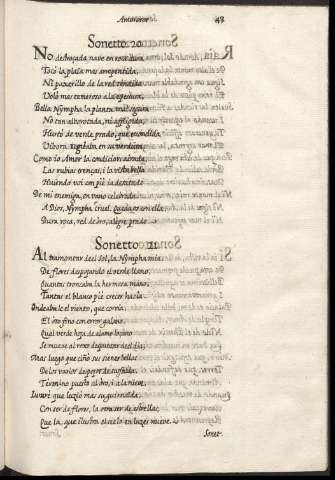 Amorosos
48
Sonetto. 20.
No destroçada naue en roca dura
Tocò la plaia mas arrepentida,
Ni paxarillo de la red tendida
Volò mas temeroso a la espesura;
Bella Nympha la planta mal segura
No tan alborotada, ni affligida,
Hurtò de verde prado, que escondida
Viuora regalaba en su verdura;
Como io Amor la condicion airada,
Las rubias trenças, i la vista bella
Huiendo voi con pie ia desatado
De mi enemiga, en vano celebrada.
A Dios, Nympha cruel. Quedaos con ella
Dura roca, red de oro, alegre prado.
Sonetto. 21.
Al tramontar del Sol, la Nympha mia
De flores despojando el verde llano,
Quantas troncaba la hermosa mano,
Tantas el blanco pie crecer hacia.
Ondeaba le el viento, que corria,
El oro fino con error galano,
Qual verde hoja de alamo loçano
Se mueue al roxo despuntar del dia;
Mas luego que ciñò sus sienes bellas
De los varios despojos de su falda,
Termino puesto al oro, i a la nieue,
Iurarè, que luciò mas su guirnalda,
Con ser de flores, la otra ser de estrellas,
Que la, que ilustra el cielo en luzes nueue.
Sonet-